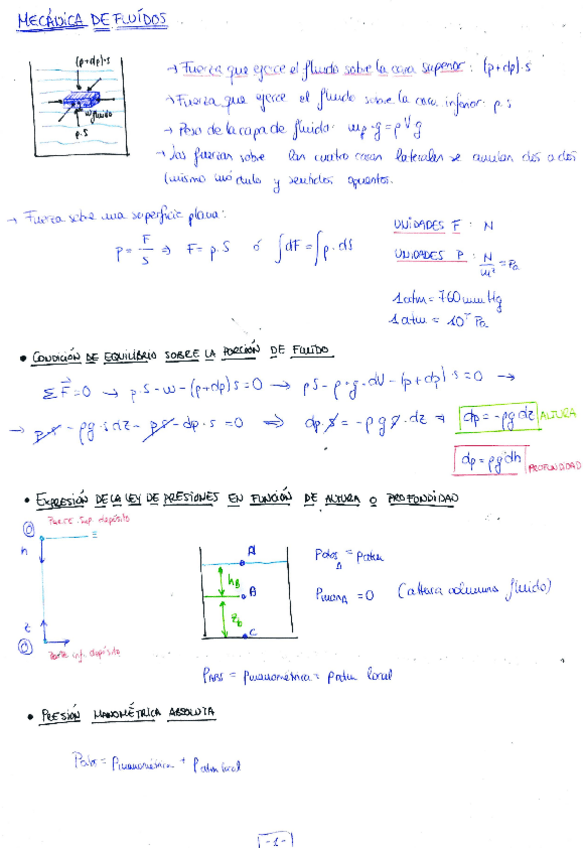 MECÁNICA DE FLUÍDOS
(p+dp)·S
w fluido
p·S
→ Fuerza que ejerce el fluido sobre la cara superior: (p+dp)·S
→ Fuerza que ejerce el fluido sobre la cara inferior: p.S
→ Peso de la capa de fluido: mp·g = ρVg
→ Las fuerzas sobre las cuatro caras laterales se anulan dos a dos
(mismo módulo y sentidos opuestos.
→ Fuerza sobre una superficie plana:
p = F/S ⇒ F = p.S ó ∫dF = ∫p.dS
UNIDADES F: N
UNIDADES P: N/m² = Pa
1 atm = 760 mmHg
1 atm = 10⁵ Pa
• CONDICIÓN DE EQUILIBRIO SOBRE LA PORCIÓN DE FLUIDO
ΣF⃗=0 → p.S - w - (p+dp)S = 0 → pS - ρ·g·dV - (p+dp)·S = 0 →
→ p·S - ρg·s dz - p·S - dp·S = 0 ⇒ dp.S = -ρ g S.dz ⇒ dp = -ρg dz ALTURA
dp = ρg dh PROFUNDIDAD
• EXPRESIÓN DE LA LEY DE PRESIONES EN FUNCIÓN DE ALTURA O PROFUNDIDAD
Parte sup. depósito
0
h
z
0
Parte inf. depósito
A
hB
B
zB
C
Pabs A = Patm
PmanA = 0 (altura columna fluido)
PABS = Pmanométrica = Patm local
• PRESIÓN MANOMÉTRICA ABSOLUTA
Pabs = Pmanométrica + Patm local
-1-